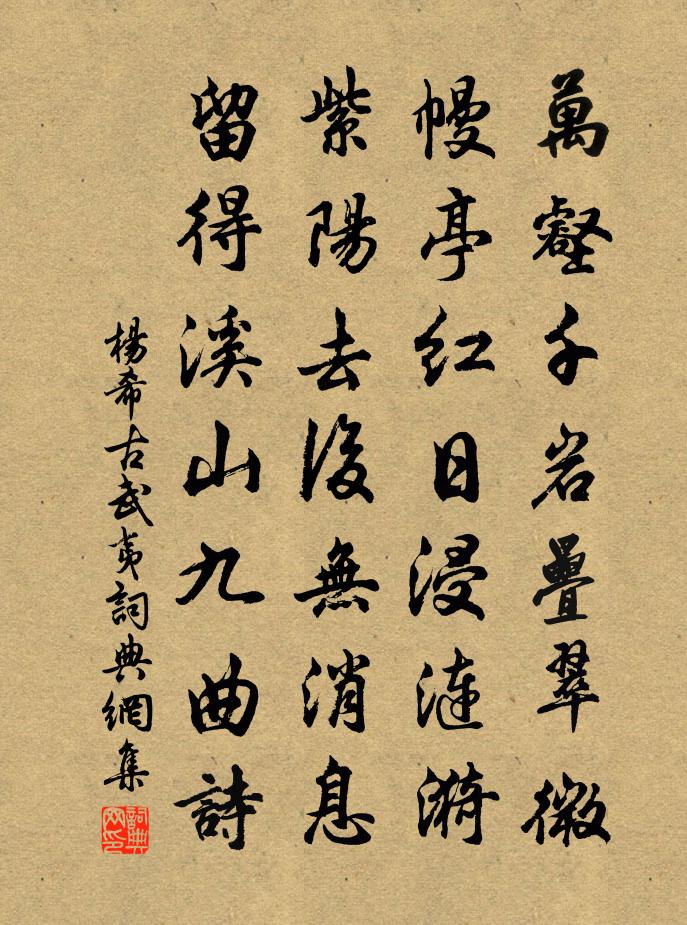 萬壑千岩疊翠微
幔亭紅日浸漣漪
紫陽去後無消息
留得溪山九曲詩
楊希古武夷詞典網集
詞典網印